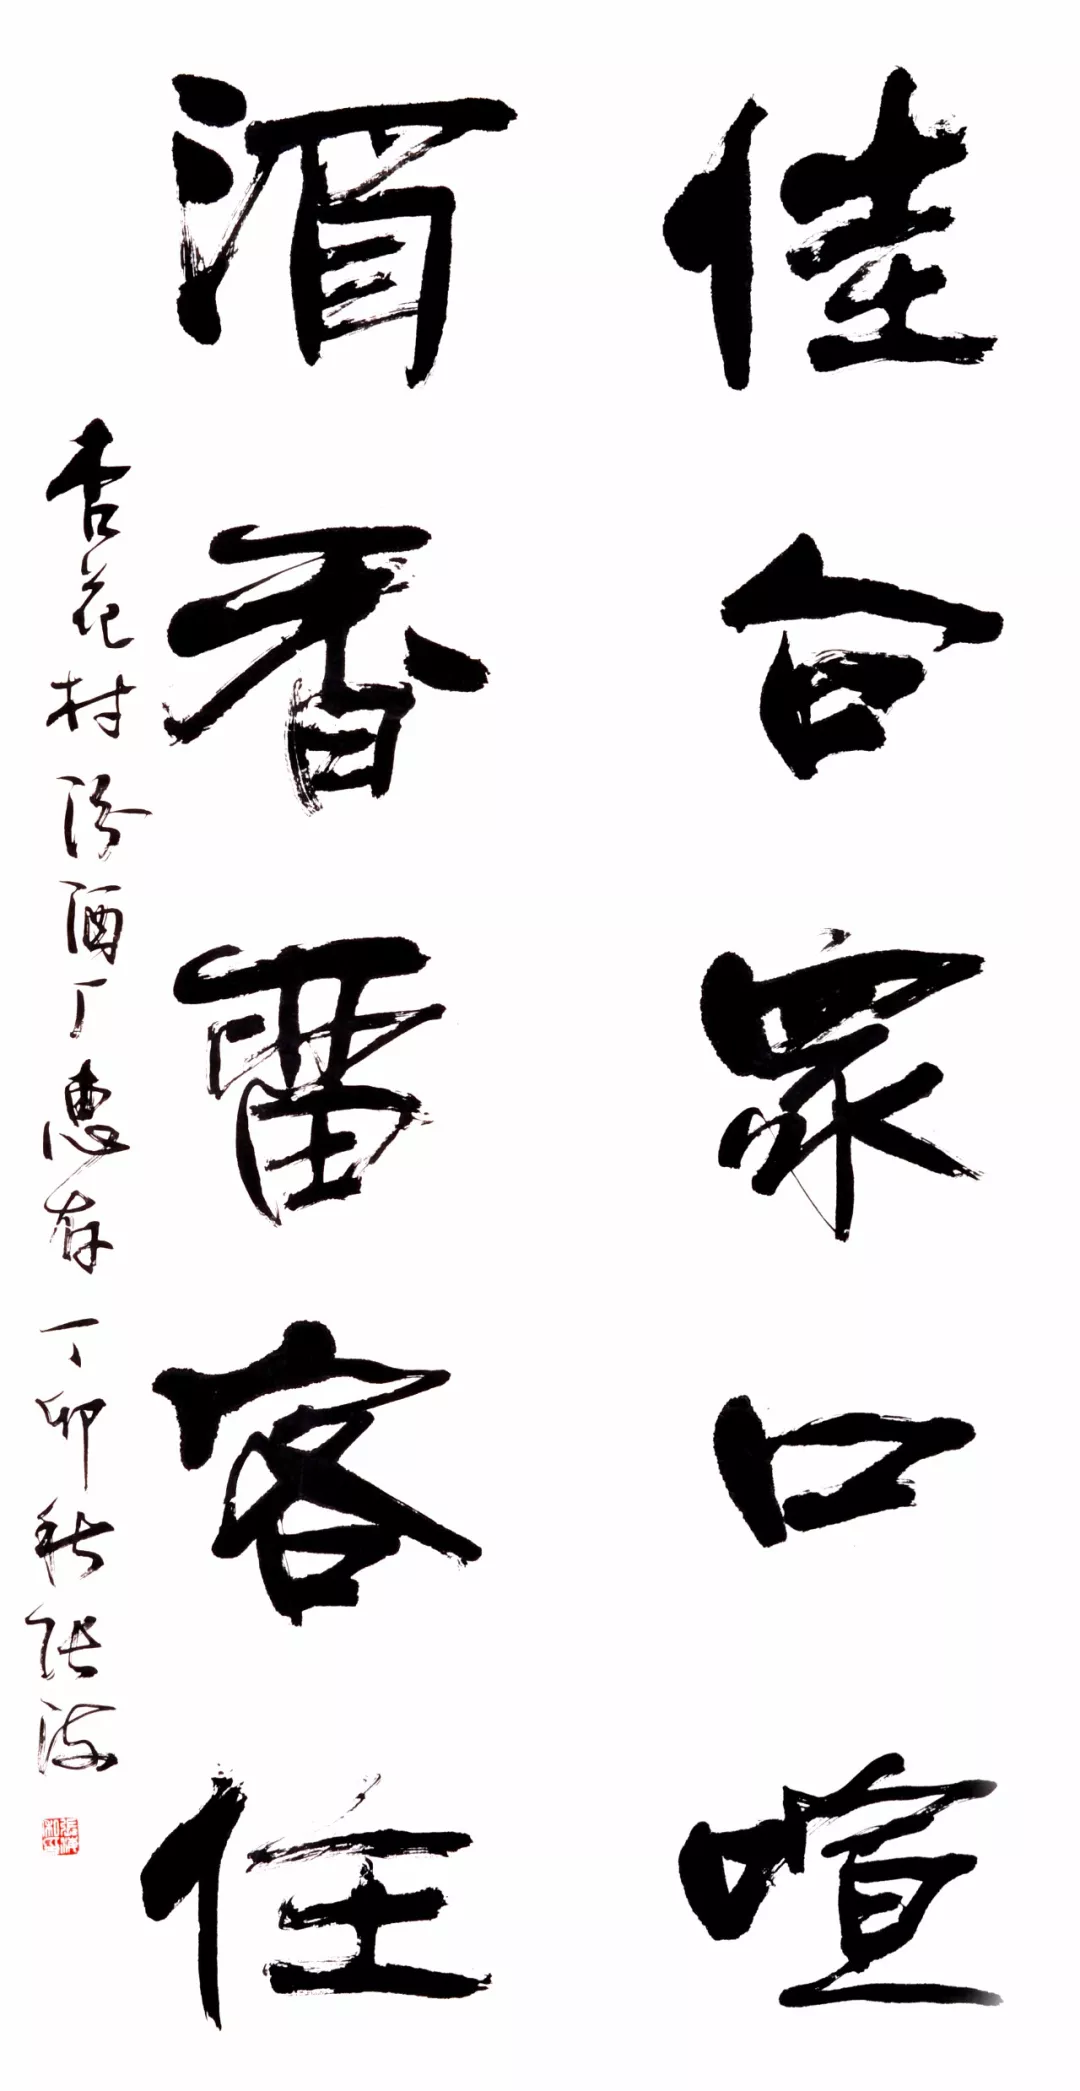 佳合众口喧
酒香留客住
杏花村汾酒厂惠存 丁卯秋张海